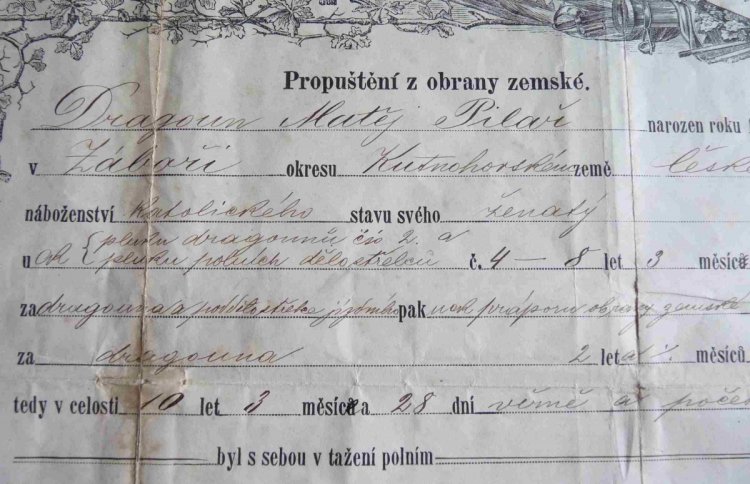 Propuštění z obrany zemské.
Dragoun Matěj Pilař narozen roku
v Záboří okresu Kutnohorském země česk
náboženství katolického stavu svého ženatý
u ck pluku dragounů čís 2. a
pluku polních dělostřelců č. 4 — 8 let 3 měsíce
za dragouna a jízdního pak u ck praporu obrany zemské
za dragouna 2 leta měsíců
tedy v celosti 10 let 3 měsíce a 28 dní věrně a poč
byl s sebou v tažení polním